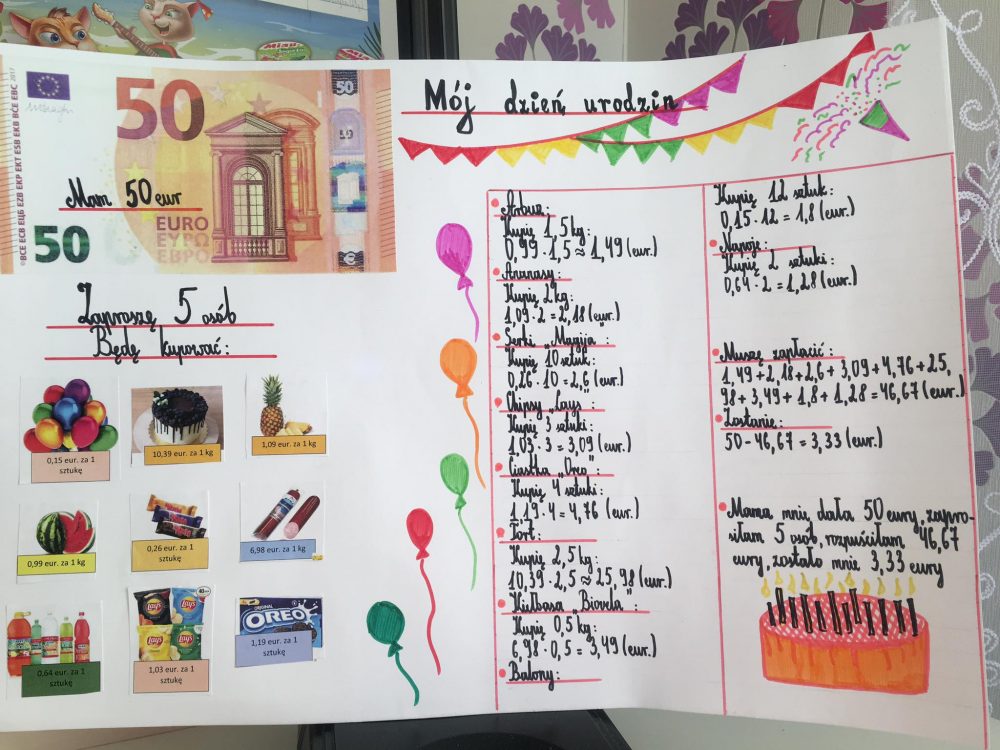 50
50
©BCE ECB ЕЦБ EZB EKP EKT ESB EKB BĊE EBC 2017
Mam 50 eur
EURO
ΕΥΡΩ
ЕВРО
50
€
Mój dzień urodzin
Zaproszę 5 osób
Będę kupować:
0,15 eur. za 1
sztukę
10,39 eur. za 1 kg
1,09 eur. za 1 kg
0,99 eur. za 1 kg
0,26 eur. za 1
sztukę
6,98 eur. za 1 kg
Lays
Lays
Lays
Lays
ORIGINAL
OREO
0,64 eur. za 1
sztukę
1,03 eur. za 1
sztukę
1,19 eur. za 1
sztukę
Arbuz:
Kupię 1,5 kg:
0,99 · 1,5 ≈ 1,49 (eur.)
Ananasy:
Kupię 2 kg:
1,09 · 2 = 2,18 (eur.)
Serki „Magija":
Kupię 10 sztuk:
0,26 · 10 = 2,6 (eur.)
Chipsy „Lays":
Kupię 3 sztuki:
1,03 · 3 = 3,09 (eur.)
Ciastka „Oreo":
Kupię 4 sztuki:
1,19 · 4 = 4,76 (eur.)
Tort:
Kupię 2,5 kg:
10,39 · 2,5 ≈ 25,98 (eur.)
Kiełbasa „Biovela":
Kupię 0,5 kg:
6,98 · 0,5 = 3,49 (eur.)
Balony:
Kupię 12 sztuk:
0,15 · 12 = 1,8 (eur.)
Napoje:
Kupię 2 sztuki:
0,64 · 2 = 1,28 (eur.)
Muszę zapłacić:
1,49 + 2,18 + 2,6 + 3,09 + 4,76 + 25,
98 + 3,49 + 1,8 + 1,28 = 46,67 (eur.)
Zostanie:
50 - 46,67 = 3,33 (eur.)
Mama mnie dała 50 eury, zapro-
siłam 5 osób, rozpuściłam 46,67
eury, zostało mnie 3,33 eury